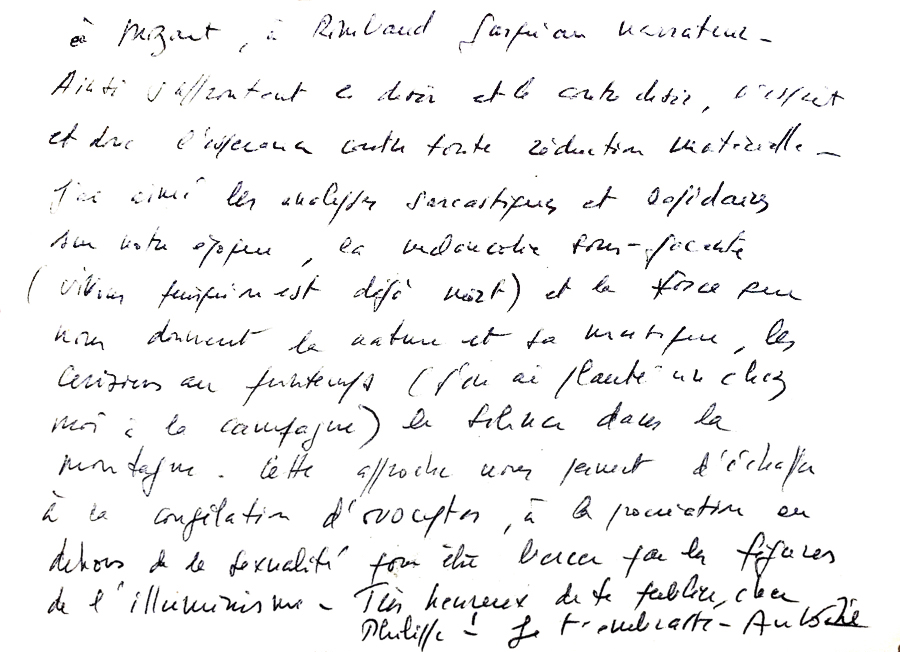 à Mozart, à Rimbaud Gaspian narrateur -
Ainsi s'affrontent le désir et le contre désir, l'esprit
et donc l'essence contre toute réduction matérielle -
J'ai aimé les analyses sarcastiques et solidaires
sur notre époque, la mélancolie sous-jacente
( puisqu'on est déjà mort) et la force que
nous donnent la nature et sa musique, les
cerisiers au printemps (j'en ai planté un chez
moi à la campagne) le silence dans la
montagne. Cette approche nous permet d'échapper
à la congélation d'ovocytes, à la procréation en
dehors de la sexualité pour être par les figures
de l'illuminisme - Très heureux de te publier, cher
Philippe - Je t'embrasse - Antoine